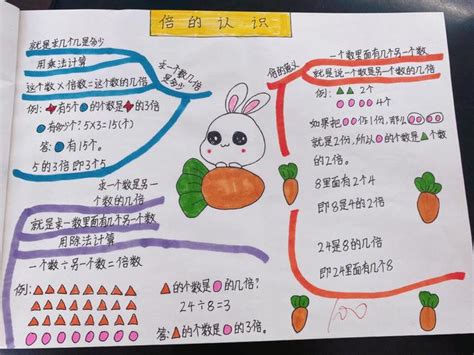 倍的认识
就是求几个几是多少
用乘法计算
这个数×倍数=这个数的几倍
例:有5个 的个数是 的3倍
有多少个? 5×3=15(个)
答: 有15个。
5的3倍即3个5
求一个数几倍
是多少
求一个数是另一
个数的几倍
就是求一数里面有几个另一个数
用除法计算
一个数÷另一个数=倍数
例:
的个数是 的几倍?
24÷8=3
答: 的个数是 的3倍。
倍的意义
一个数里面有几个另一个数
就是说一个数是另一个数的几倍
例: 2个
4个
如果把 作1份,那么
就是2份,所以 的个数是 个数
的2倍。
8里面有2个4
即8是4的2倍
24是8的几倍
即24里面有几个8
100